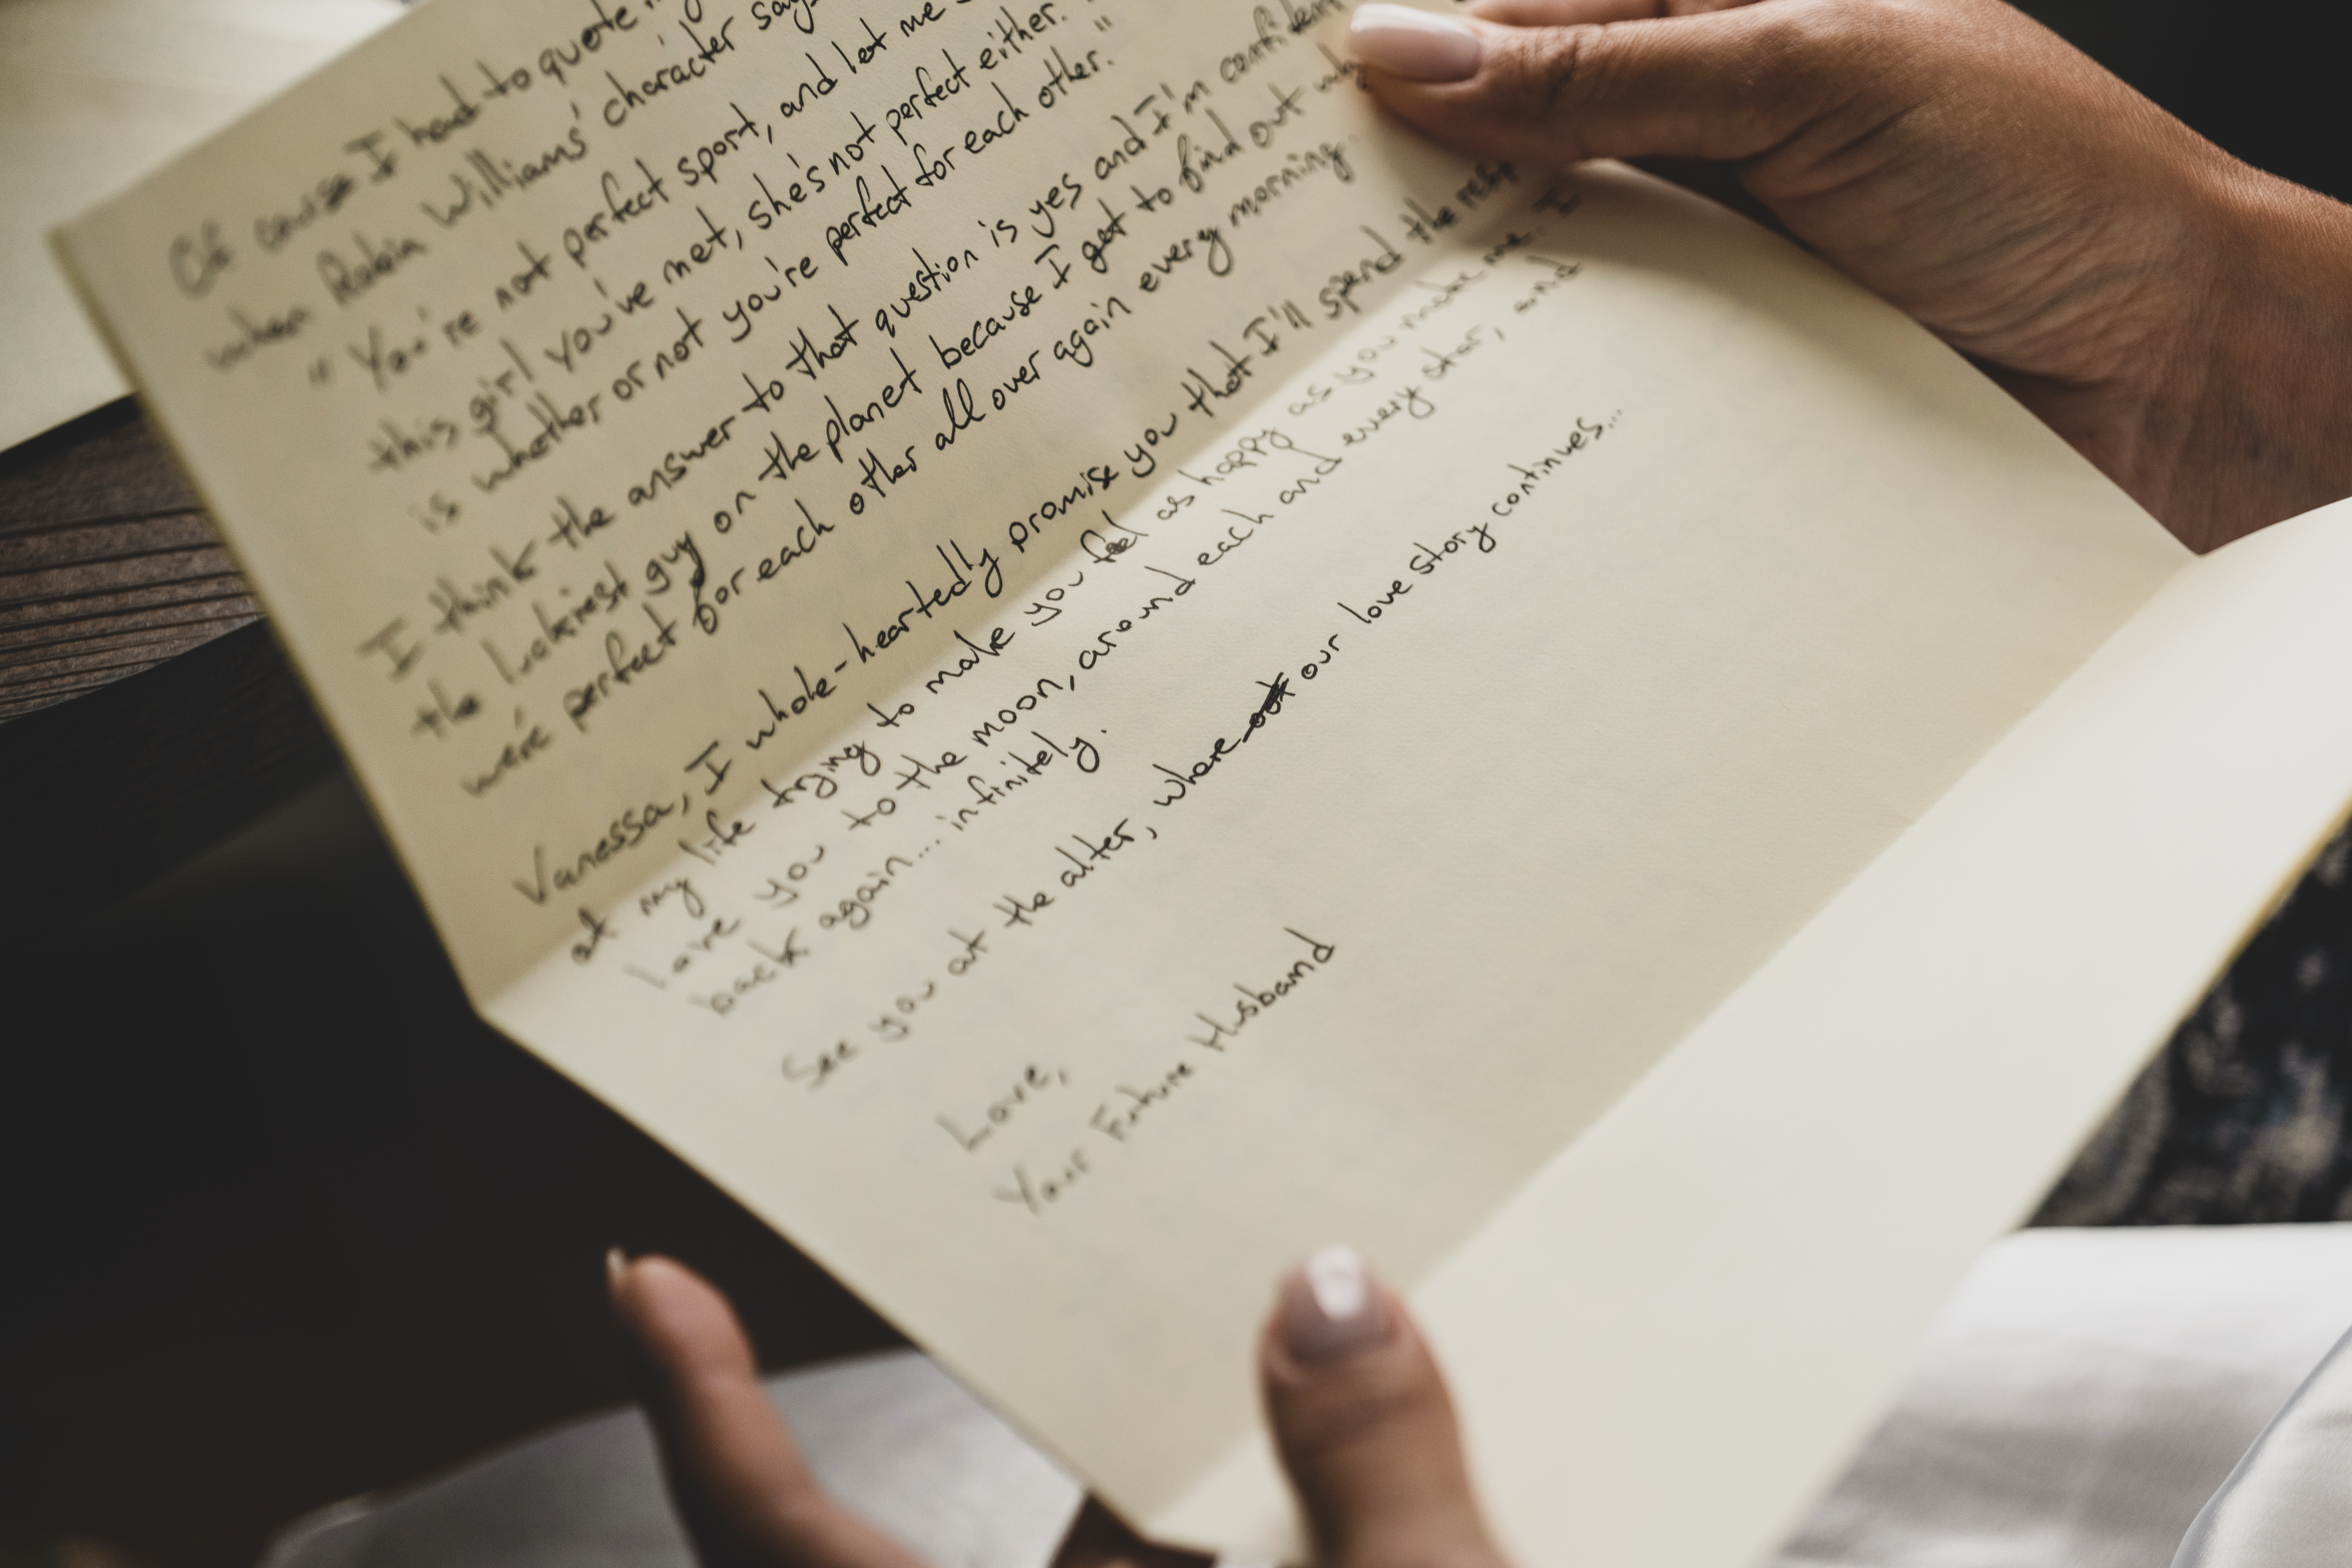 Of couse I had to quote
when Robin Williams' character says
"You're not perfect sport, and let me
this girl you've met, she's not perfect either.
is whether or not you're perfect for each other."
I think the answer to that question is yes and I'm confident
the luckiest guy on the planet because I get to find out why
we're perfect for each other all over again every morning.
Vanessa, I whole-heartedly promise you that I'll spend the rest
of my life trying to make you feel as happy as you make me. I
love you to the moon, around each and every star, and
back again... infinitely.
See you at the alter, where our love story continues...
Love,
Your Future Husband